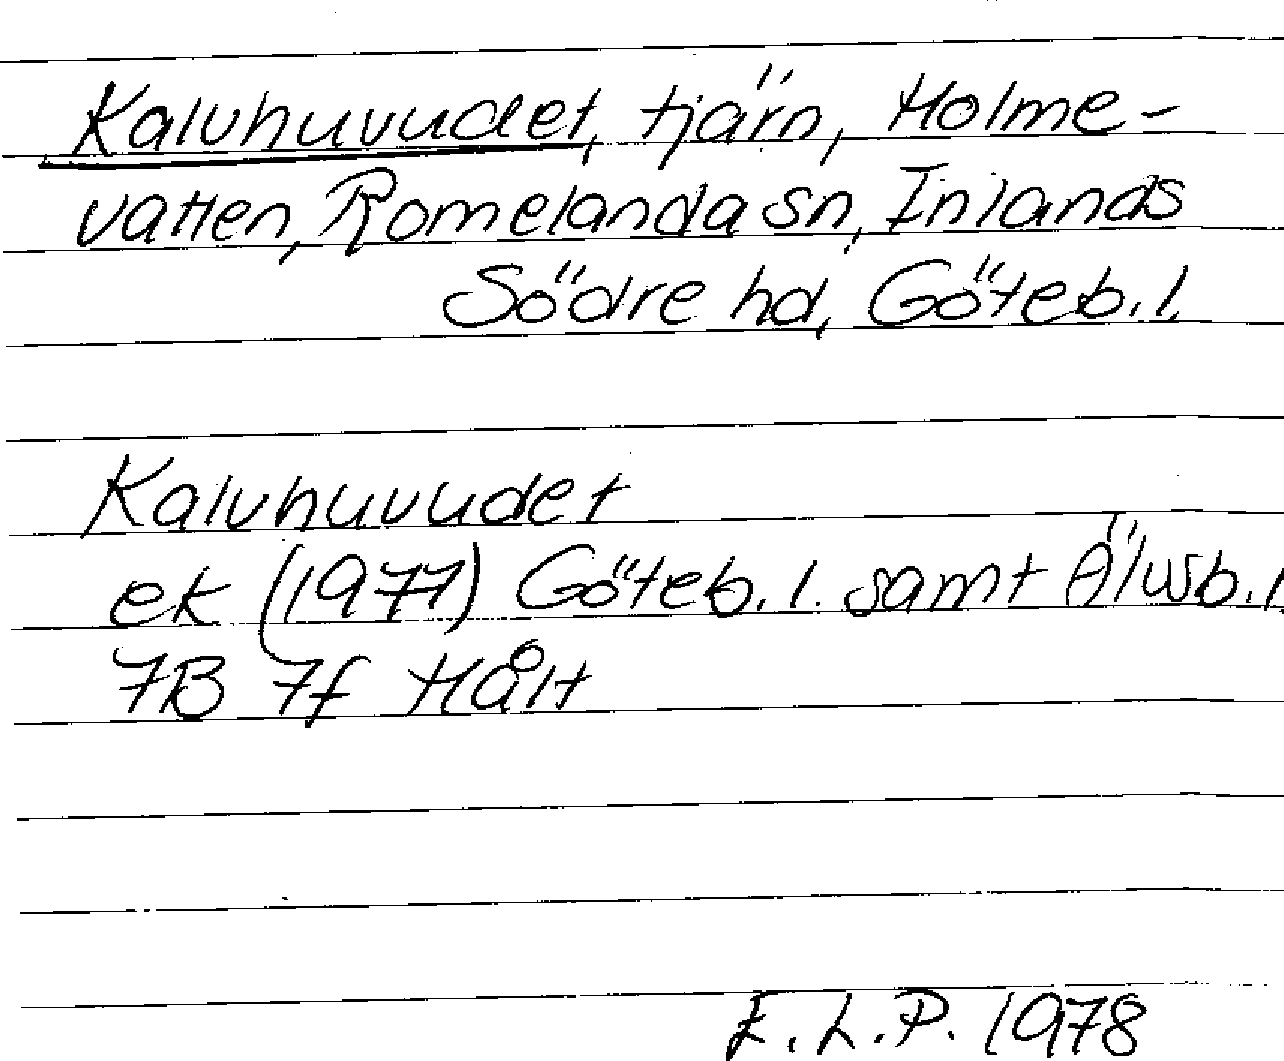 Kalvhuvudet, tjärn, Holme-
vatten, Romelanda sn, Inlands
Södre hd, Göteb. l.
Kalvhuvudet
ek (1977) Göteb. l. samt Älvsb. l.
7B 7f Hålt
E. L. P. 1978